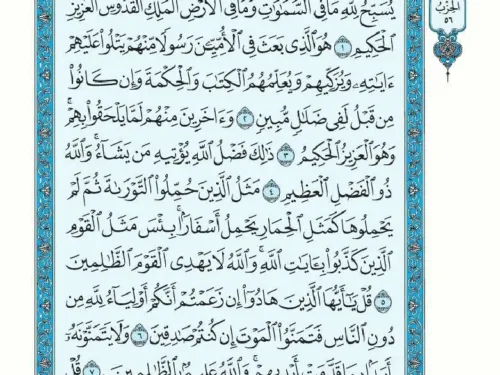 الحزب
٥٦
يُسَبِّحُ لِلَّهِ مَا فِي ٱلسَّمَٰوَٰتِ وَمَا فِي ٱلۡأَرۡضِ ٱلۡمَلِكِ ٱلۡقُدُّوسِ ٱلۡعَزِيزِ
ٱلۡحَكِيمِ ١ هُوَ ٱلَّذِي بَعَثَ فِي ٱلۡأُمِّيِّـۧنَ رَسُولٗا مِّنۡهُمۡ يَتۡلُواْ عَلَيۡهِمۡ
ءَايَٰتِهِۦ وَيُزَكِّيهِمۡ وَيُعَلِّمُهُمُ ٱلۡكِتَٰبَ وَٱلۡحِكۡمَةَ وَإِن كَانُواْ
مِن قَبۡلُ لَفِي ضَلَٰلٖ مُّبِينٖ ٢ وَءَاخَرِينَ مِنۡهُمۡ لَمَّا يَلۡحَقُواْ بِهِمۡۚ
وَهُوَ ٱلۡعَزِيزُ ٱلۡحَكِيمُ ٣ ذَٰلِكَ فَضۡلُ ٱللَّهِ يُؤۡتِيهِ مَن يَشَآءُۚ وَٱللَّهُ
ذُو ٱلۡفَضۡلِ ٱلۡعَظِيمِ ٤ مَثَلُ ٱلَّذِينَ حُمِّلُواْ ٱلتَّوۡرَىٰةَ ثُمَّ لَمۡ
يَحۡمِلُوهَا كَمَثَلِ ٱلۡحِمَارِ يَحۡمِلُ أَسۡفَارَۢاۚ بِئۡسَ مَثَلُ ٱلۡقَوۡمِ
ٱلَّذِينَ كَذَّبُواْ بِـَٔايَٰتِ ٱللَّهِۚ وَٱللَّهُ لَا يَهۡدِي ٱلۡقَوۡمَ ٱلظَّٰلِمِينَ
٥ قُلۡ يَٰٓأَيُّهَا ٱلَّذِينَ هَادُوٓاْ إِن زَعَمۡتُمۡ أَنَّكُمۡ أَوۡلِيَآءُ لِلَّهِ مِن
دُونِ ٱلنَّاسِ فَتَمَنَّوُاْ ٱلۡمَوۡتَ إِن كُنتُمۡ صَٰدِقِينَ ٦ وَلَا يَتَمَنَّوۡنَهُۥٓ
أَبَدَۢا بِمَا قَدَّمَتۡ أَيۡدِيهِمۡۚ وَٱللَّهُ عَلِيمُۢ بِٱلظَّٰلِمِينَ ٧ قُلۡ